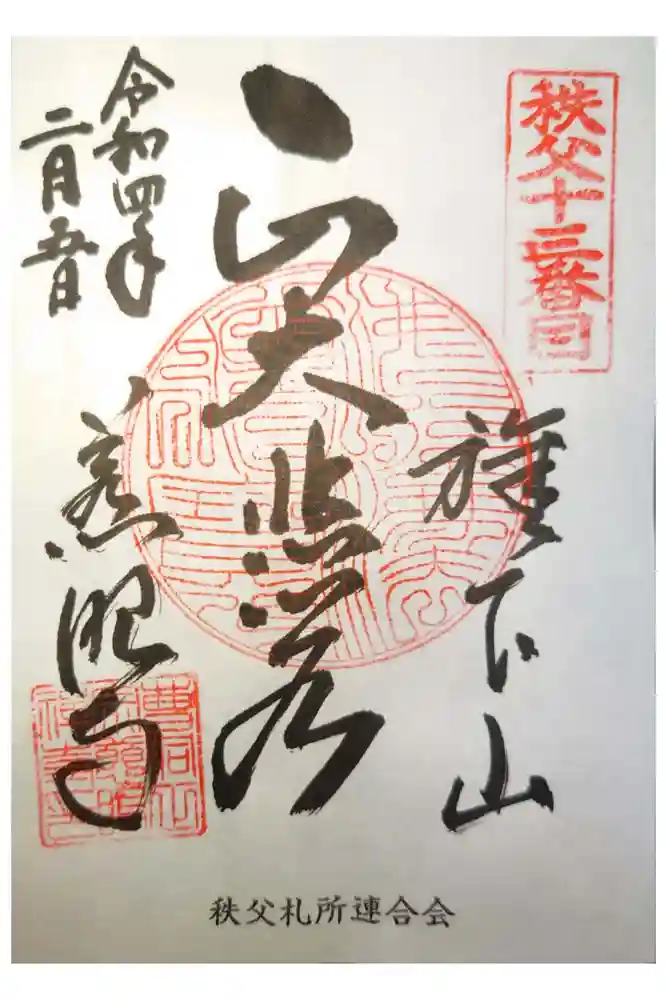 秩父十三番目
旗下山
大悲閣
令和四年
二月五日
慈眼寺
秩父札所連合会